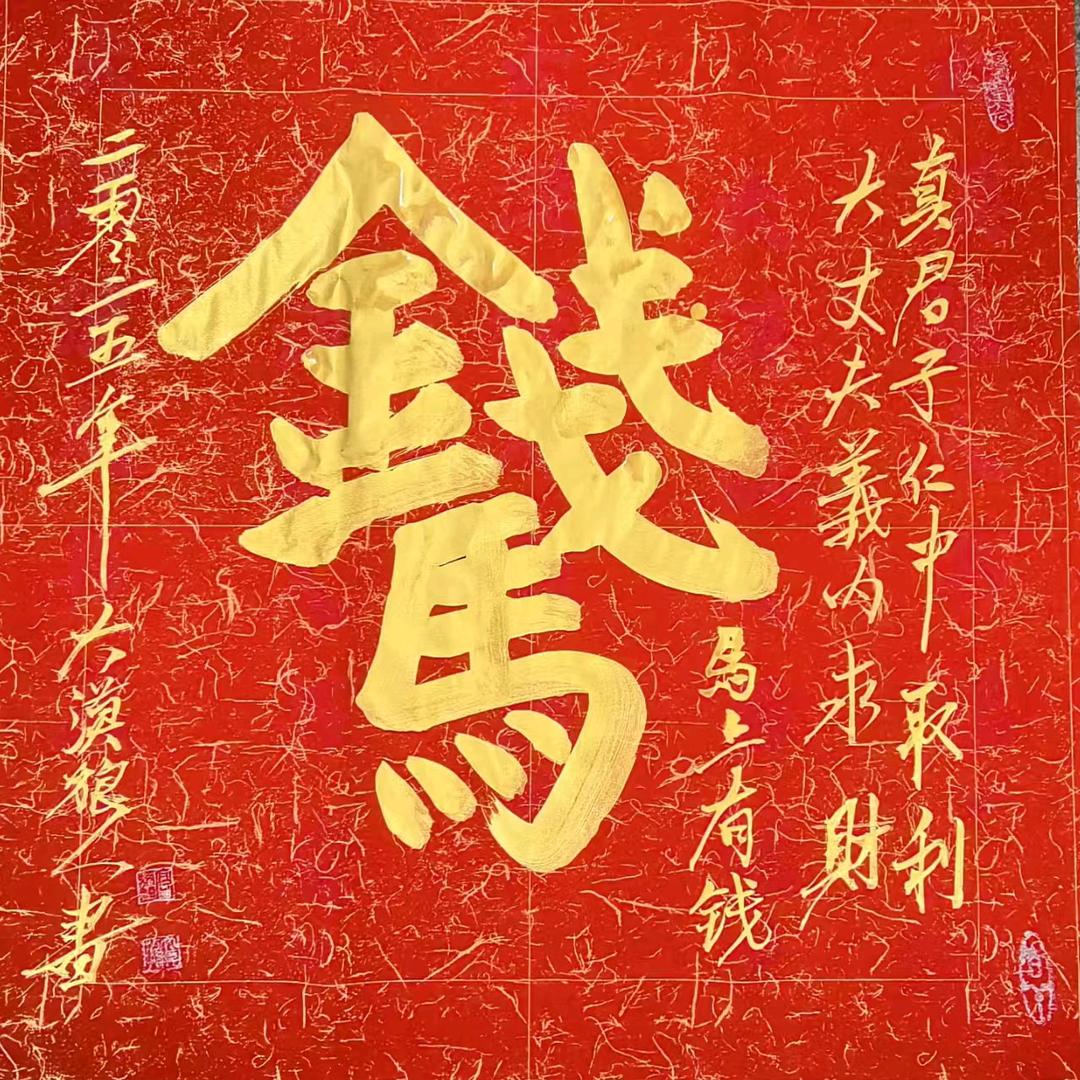 真君子仁中取利
大丈夫義内求財
馬上有钱
錢馬
二零二五年 大漠狼人書